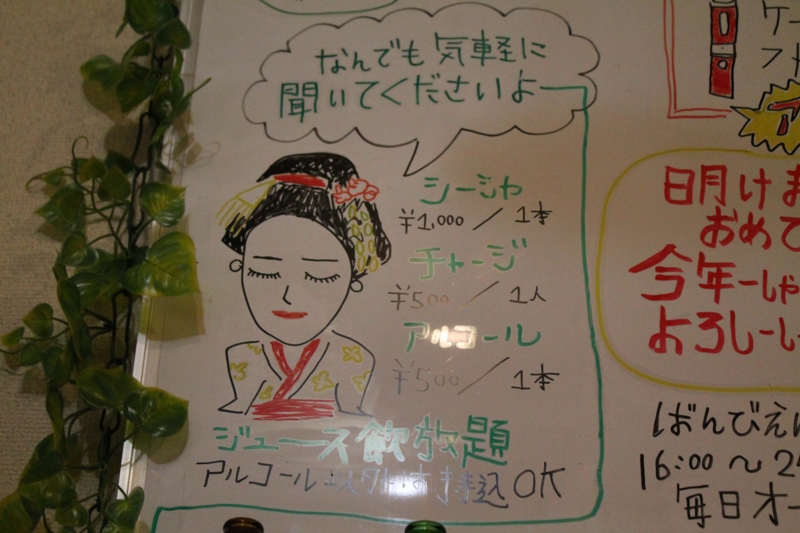 なんでも気軽に
聞いてくださいよー
シーシャ
¥1,000/1本
チャージ
¥500/1人
アルコール
¥500/1本
ジュース飲放題
アルコール 持込OK
ケー
日月けま
おめて
今年ーしゃ
よろしーし
ばんびえ
16:00〜2
毎日オー